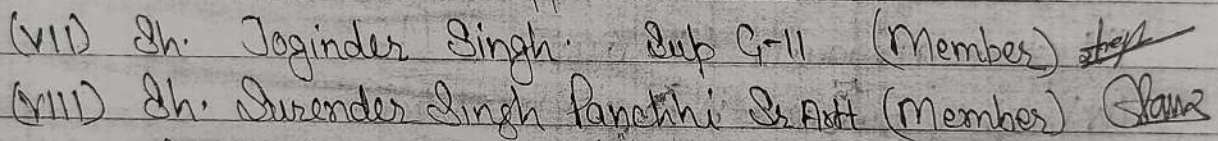 (VII) Sh. Joginder Singh. Sub G-11 (Member)
(VIII) Sh. Surender Singh Panchhi Sr Astt (Member)